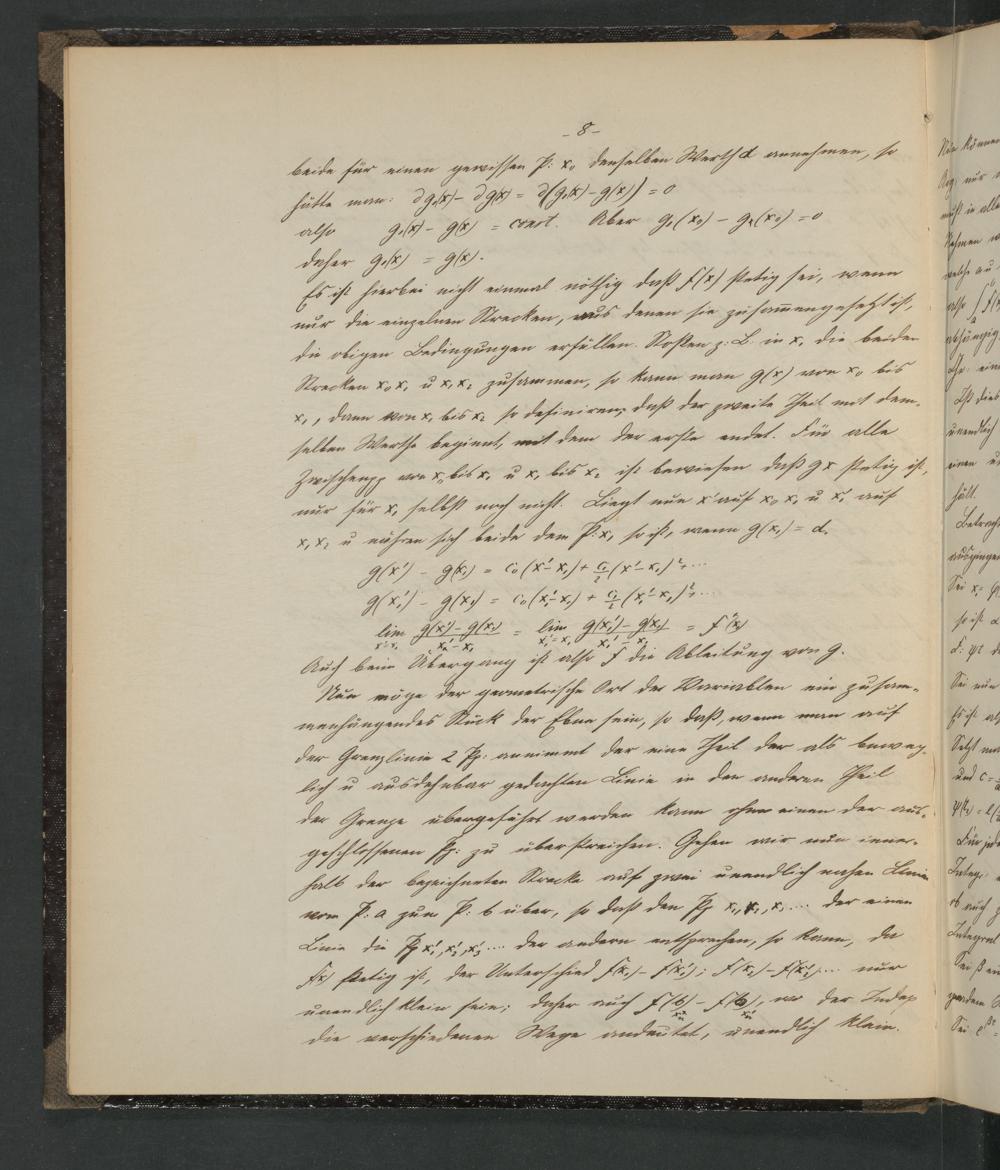 - 8 -
beide für einen gewissen P: x₀ denselben Werth α annehmen, so
hätte man: ∂g₀(x) - ∂g(x) = ∂(g₀(x) - g(x)) = 0
also g₀(x) - g(x) = const. Aber g₀(x₀) - g(x₀) = 0
daher g₀(x) = g(x).
Es ist hierbei nicht einmal nöthig daß f(x) stetig sei, wenn
nur die einzelnen Strecken, aus denen sie zusam̄engesetzt ist,
die obigen Bedingungen erfüllen. Stoßen z: B. in x₁ die beiden
Strecken x₀x₁ u x₁x₂ zusammen, so kann man g(x) von x₀ bis
x₁, dann von x₁ bis x₂ so definiren, daß der zweite Theil mit dem-
selben Werthe beginnt, mit dem der erste endet. Für alle
Zwischenpp von x₀ bis x₁ u x₁ bis x₂ ist bewiesen daß gx stetig ist,
nur für x₁ selbst noch nicht. Liegt nun x' auf x₀x₁ u x₁' auf
x₁x₂ u nähern sich beide dem P: x₁, so ist, wenn g(x₁) = α,
g(x') - g(x₁) = c₀(x'-x₁) + c₁/2 (x'-x₁)² + ...
g(x₁') - g(x₁) = c₀(x₁'-x₁) + c₁/2 (x₁'-x₁)² + ...
lim g(x')-g(x₁) / x'-x₁ = lim g(x₁')-g(x₁) / x₁'-x₁ = f(x)
Auch beim Übergang ist also f die Ableitung von g.
Nun möge der geometrische Ort der Variablen ein zusam-
menhängendes Stück der Ebne sein, so daß, wenn man auf
der Grenzlinie 2 Pp: annimmt der eine Theil der als beweg-
lich u ausdehnbar gedachten Linie in den anderen Theil
der Grenze übergeführt werden kann ohne einen der aus-
geschlossenen Pp: zu überstreichen. Gehen wir nun inner-
halb der bezeichneten Strecke auf zwei unendlich nahen Linien
vom P: a zum P: b über, so daß den Pp x₁, x₂, x₃ ... der einen
Linie die Pp x₁', x₂', x₃' ... der andern entsprechen, so kann, da
f(x) stetig ist, der Unterschied f(x₁) - f(x₁'); f(x₂) - f(x₂') ... nur
unendlich klein sein; daher auch F(b) - F(b), wo der Index
die verschiedenen Wege andeutet, unendlich klein.